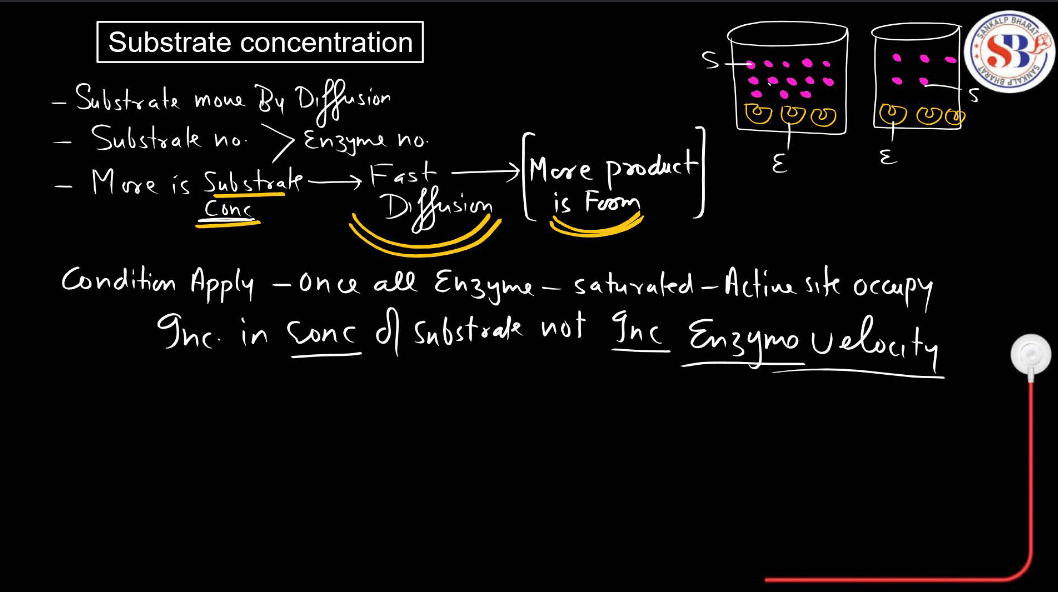 Substrate concentration
- Substrate move By Diffusion
- Substrate no. > Enzyme no.
- More is Substrate Conc → Fast Diffusion → [More product is Foom]
Condition Apply - Once all Enzyme - saturated - Active site occupy
Inc. in conc of substrate not Inc Enzyme velocity
S
E
S
E
SANKALP BHARAT
SB
SANKALP BHARAT